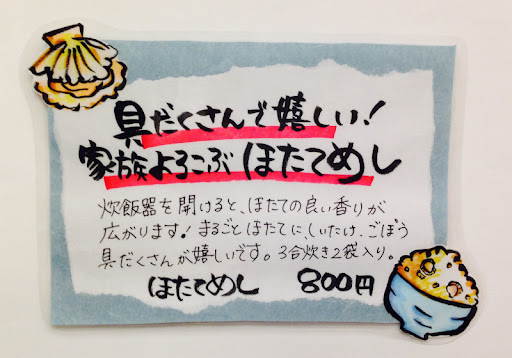 具だくさんで嬉しい!
家族よろこぶ ほたてめし
炊飯器を開けると、ほたての良い香りが
広がります! まるごとほたてに、しいたけ、ごぼう
具だくさんが嬉しいです。3合炊き2袋入り。
ほたてめし 800円